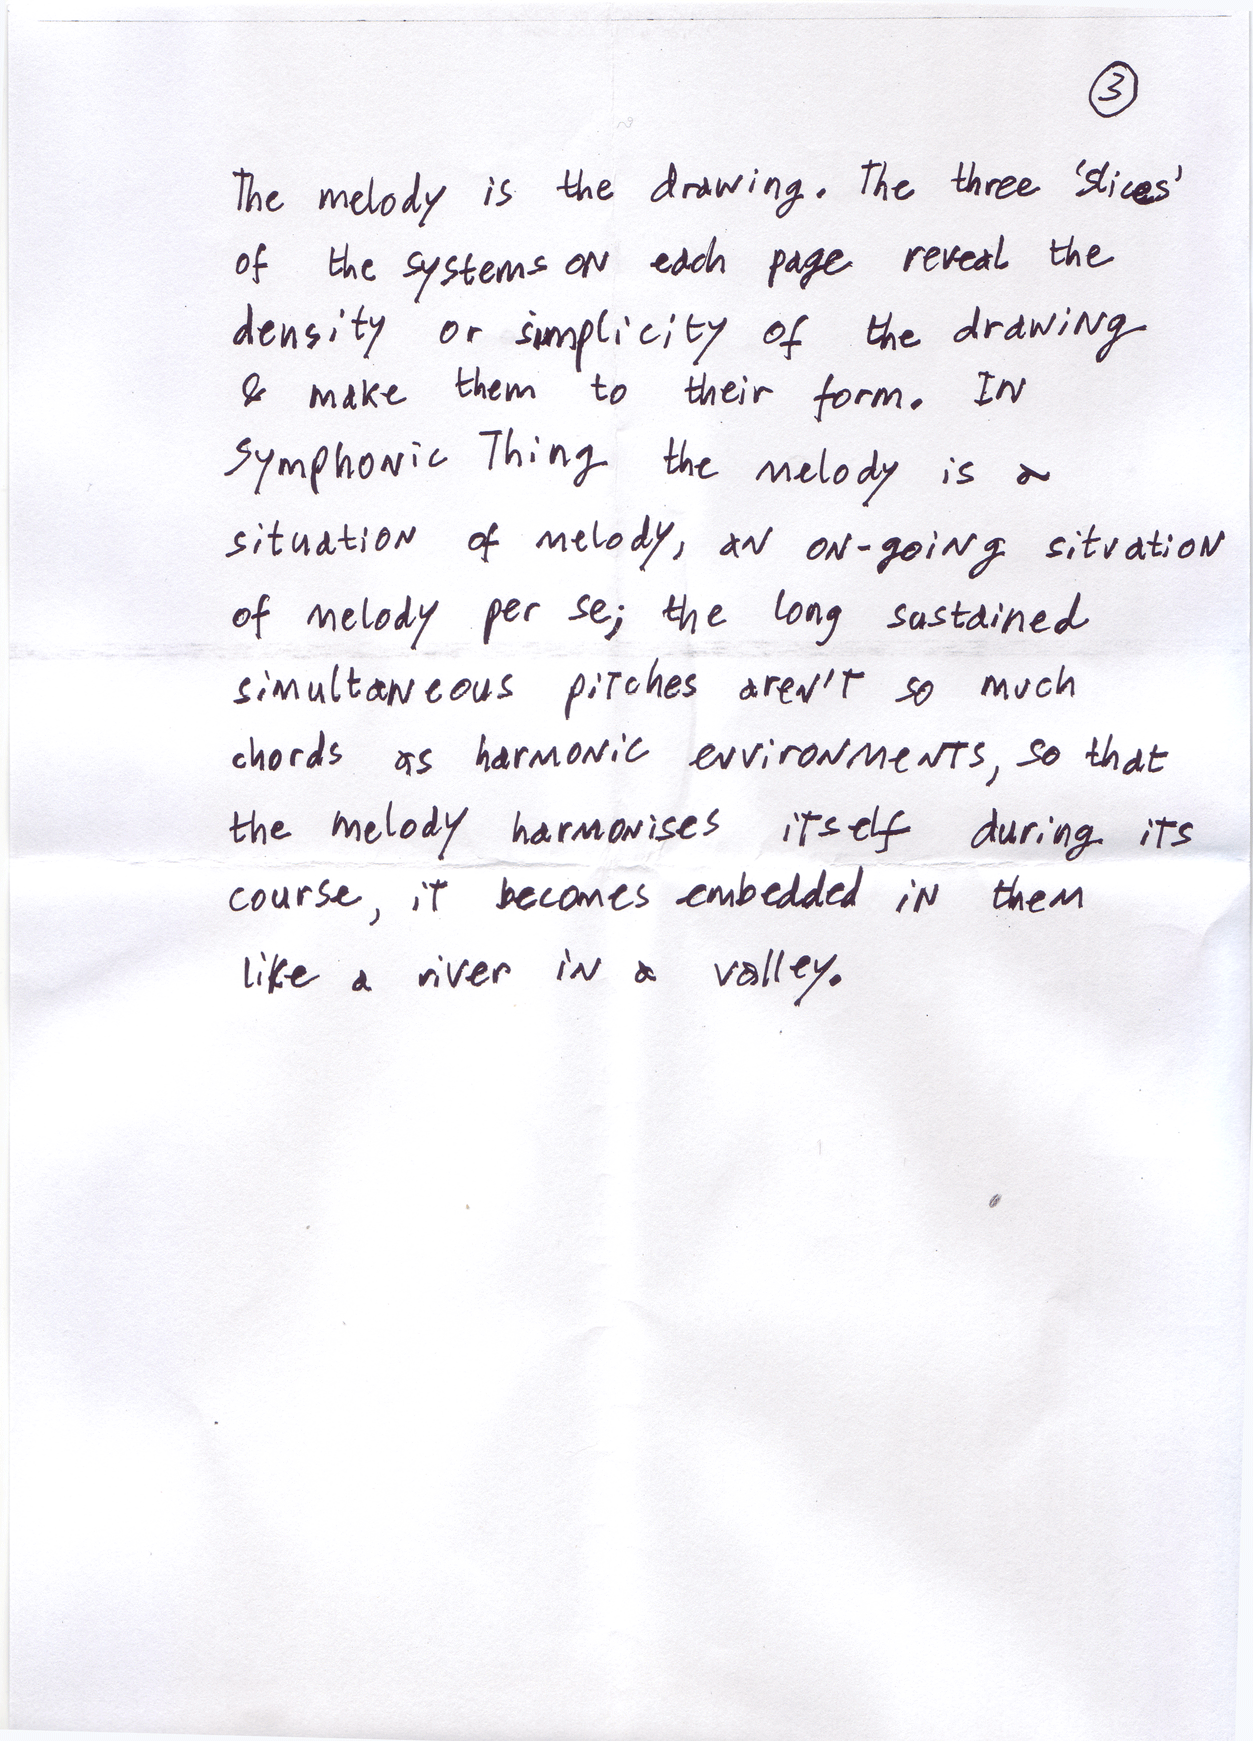 3
The melody is the drawing. The three 'slices'
of the systems on each page reveal the
density or simplicity of the drawing
& make them to their form. In
Symphonic Thing the melody is a
situation of melody, an on-going situation
of melody per se; the long sustained
simultaneous pitches aren't so much
chords as harmonic environments, so that
the melody harmonises itself during its
course, it becomes embedded in them
like a river in a valley.